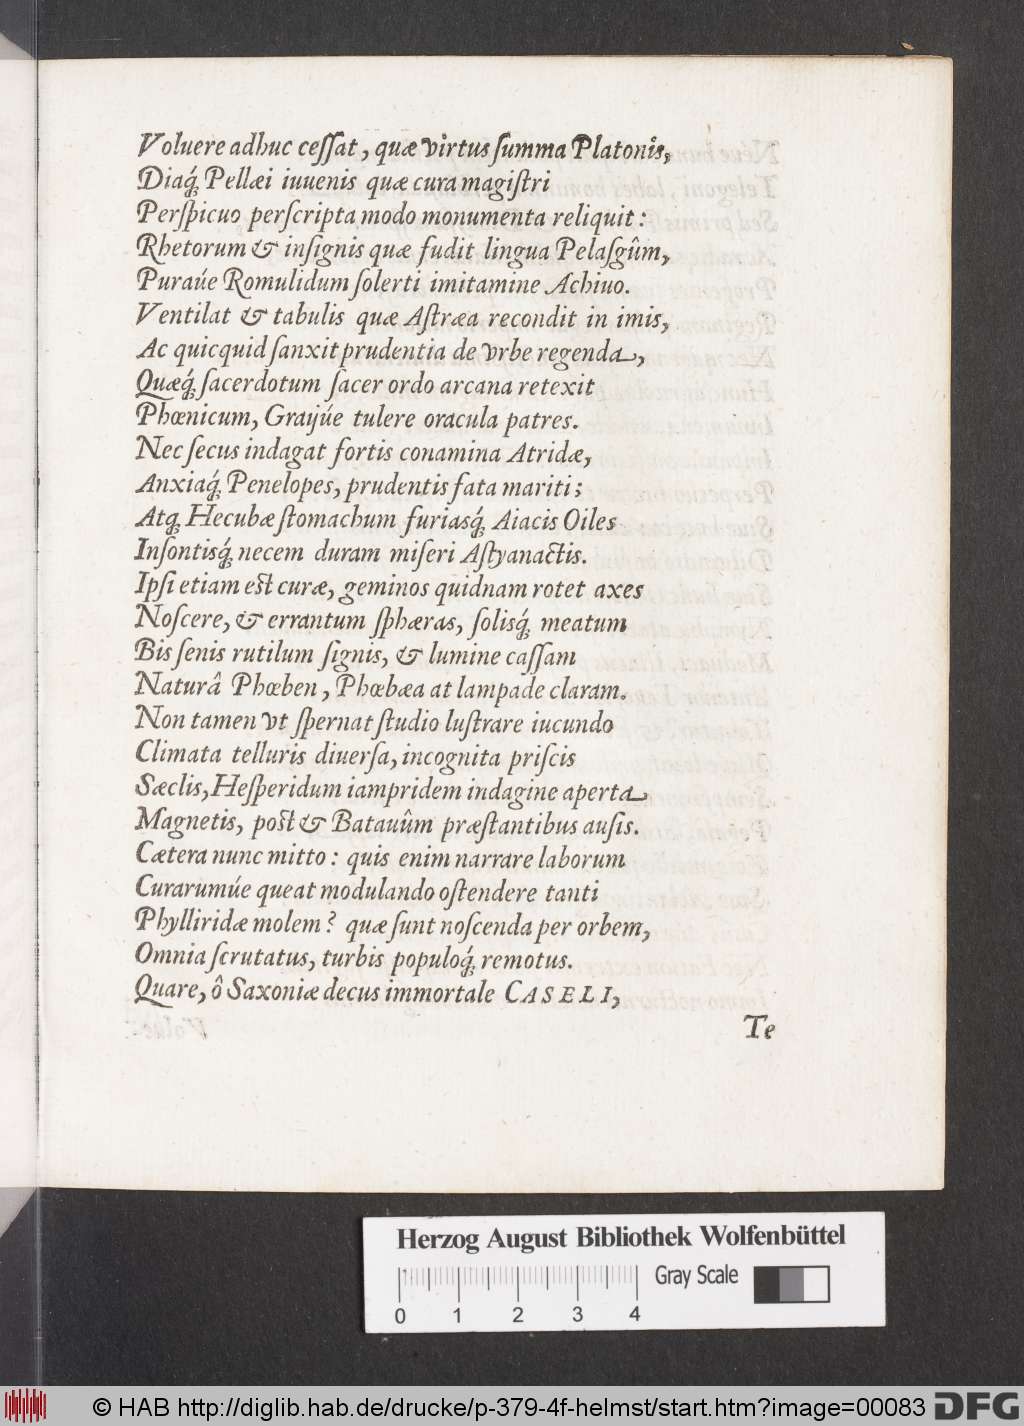 Voluere adhuc ceſſat, quæ virtus ſumma Platonis,
Diaq́ꝫ Pellæi iuuenis quæ cura magiſtri
Perſpicuo perſcripta modo monumenta reliquit:
Rhetorum & inſignis quæ fudit lingua Pelaſgûm,
Puraúe Romulidum ſolerti imitamine Achiuo.
Ventilat & tabulis quæ Aſtræa recondit in imis,
Ac quicquid ſanxit prudentia de vrbe regenda,
Quæq́ꝫ ſacerdotum ſacer ordo arcana retexit
Phœnicum, Graijúe tulere oracula patres.
Nec ſecus indagat fortis conamina Atridæ,
Anxiaq́ꝫ Penelopes, prudentis fata mariti;
Atq́ꝫ Hecubæ ſtomachum furiasq́ꝫ Aiacis Oiles
Inſontisq́ꝫ necem duram miſeri Aſtyanactis.
Ipſi etiam est curæ, geminos quidnam rotet axes
Noſcere, & errantum ſphæras, ſolisq́ꝫ meatum
Bis ſenis rutilum ſignis, & lumine caſſam
Naturâ Phœben, Phœbæa at lampade claram.
Non tamen vt ſpernat ſtudio luſtrare iucundo
Climata telluris diuerſa, incognita priſcis
Sæclis, Heſperidum iampridem indagine aperta
Magnetis, post & Batauûm præſtantibus auſis.
Cætera nunc mitto: quis enim narrare laborum
Curarumúe queat modulando oſtendere tanti
Phylliridæ molem? quæ ſunt noſcenda per orbem,
Omnia ſcrutatus, turbis populoq́ꝫ remotus.
Quare, ô Saxoniæ decus immortale CASELI,
Te
Herzog August Bibliothek Wolfenbüttel
Gray Scale
0 1 2 3 4
© HAB http://diglib.hab.de/drucke/p-379-4f-helmst/start.htm?image=00083
DFG